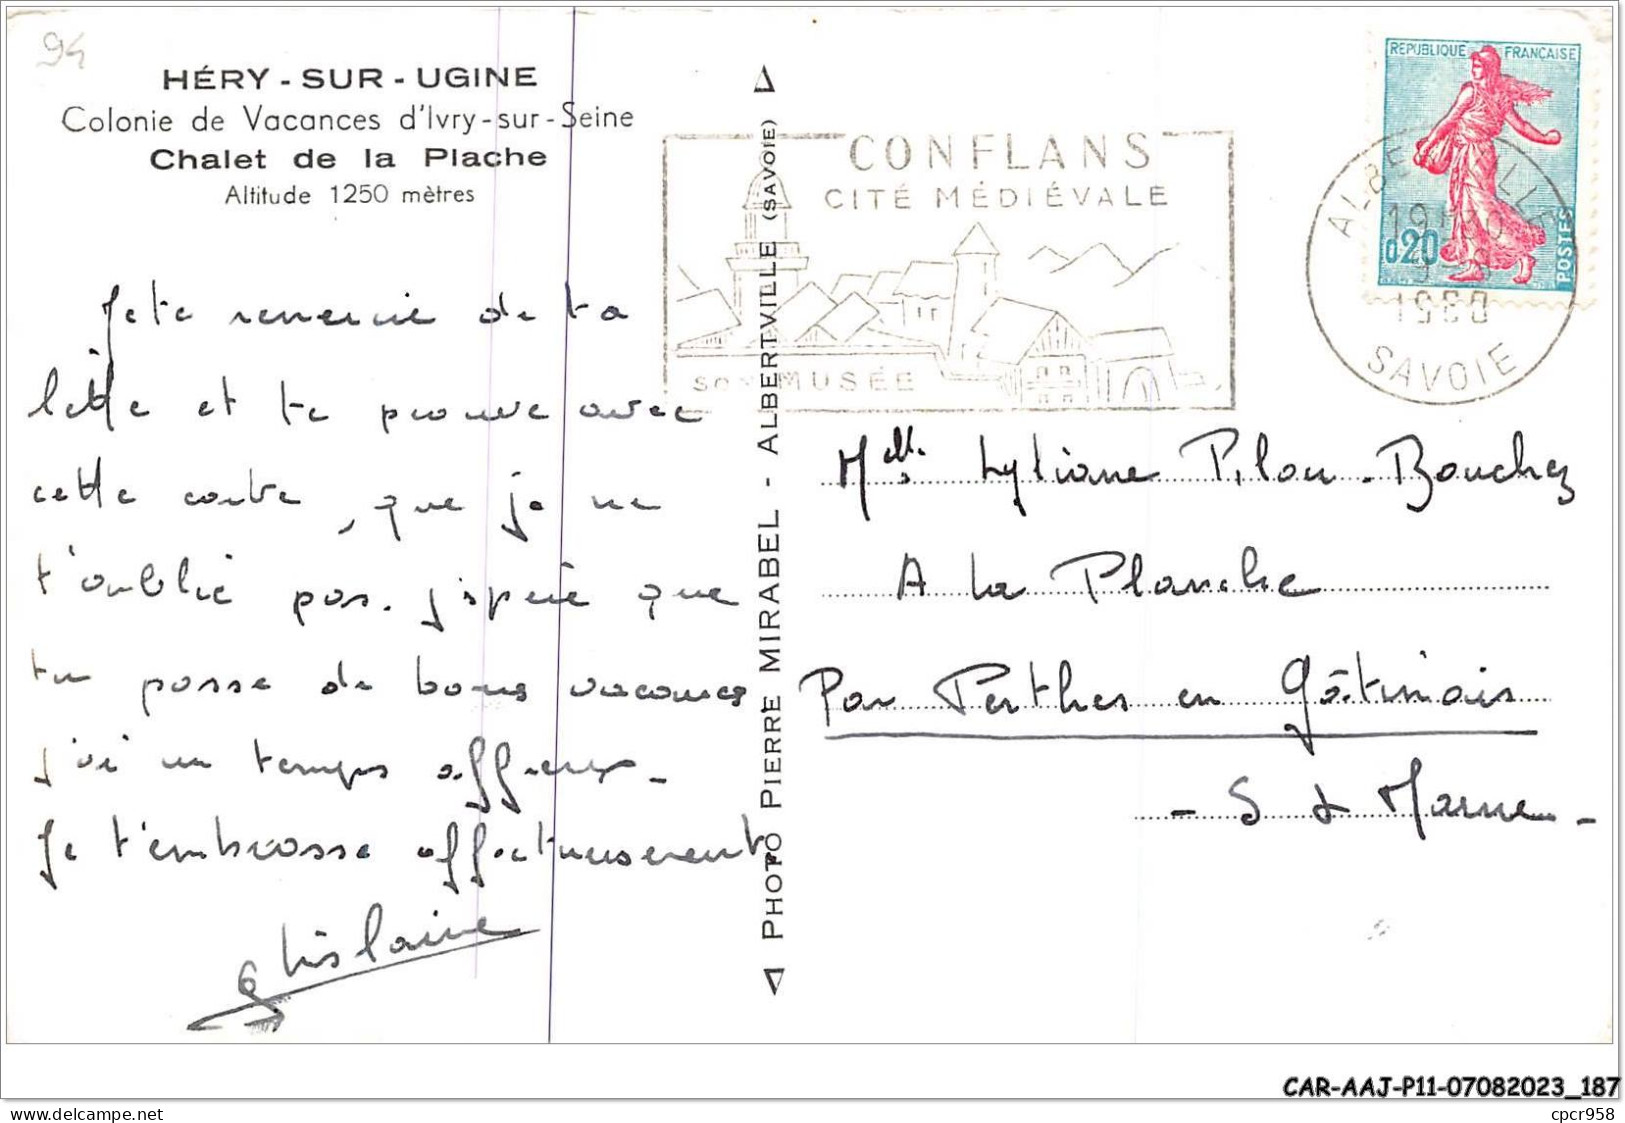 94
HÉRY - SUR - UGINE
Colonie de Vacances d'Ivry-sur-Seine
Chalet de la Plache
Altitude 1250 mètres
Je te remercie de ta
lettre et te prouve avec
cette carte, que je ne
t'oublie pas. J'espère que
tu passe de bons vacances
j'ai un temps affreux -
Je t'embrasse affectueusement.
Ghislaine
PHOTO PIERRE MIRABEL - ALBERTVILLE (SAVOIE)
CONFLANS
CITÉ MÉDIÉVALE
SON MUSÉE
REPUBLIQUE FRANÇAISE
0,20
POSTES
ALBERTVILLE
19H30
1960
SAVOIE
Melle Lyliane Pilou-Bouchez
A la Planche
Par Perthes en Gâtinais
- S & Marne -
CAR-AAJ-P11-07082023_187
cpcr958